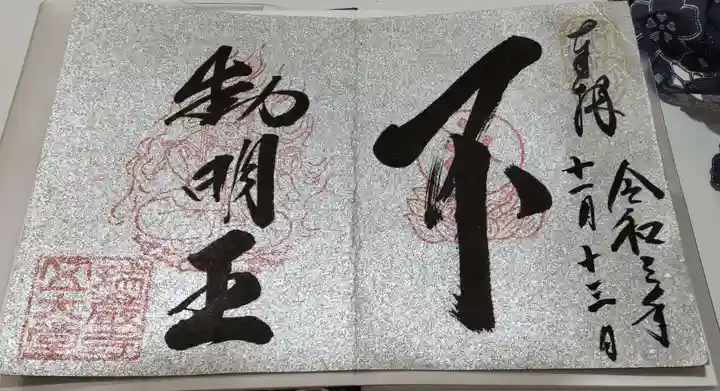 奉拝
令和三年
十一月十三日
不
動明王